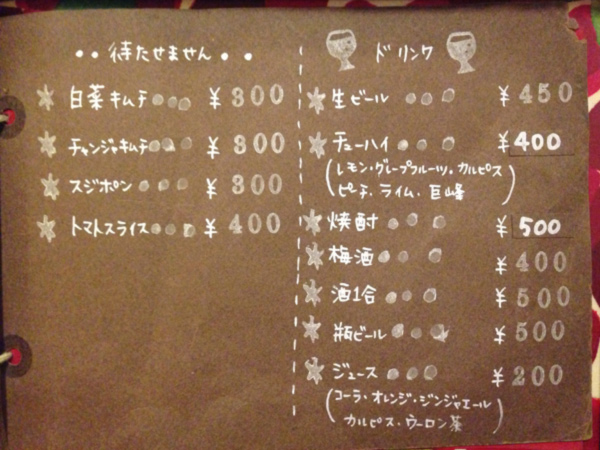 待たせません
白菜キムチ ¥300
チャンジャキムチ ¥300
スジポン ¥300
トマトスライス ¥400
ドリンク
生ビール ¥450
チューハイ ¥400
(レモン・グレープフルーツ・カルピス
ピーチ・ライム・巨峰)
焼酎 ¥500
梅酒 ¥400
酒1合 ¥500
瓶ビール ¥500
ジュース ¥200
(コーラ・オレンジ・ジンジャエール
カルピス・ウーロン茶)